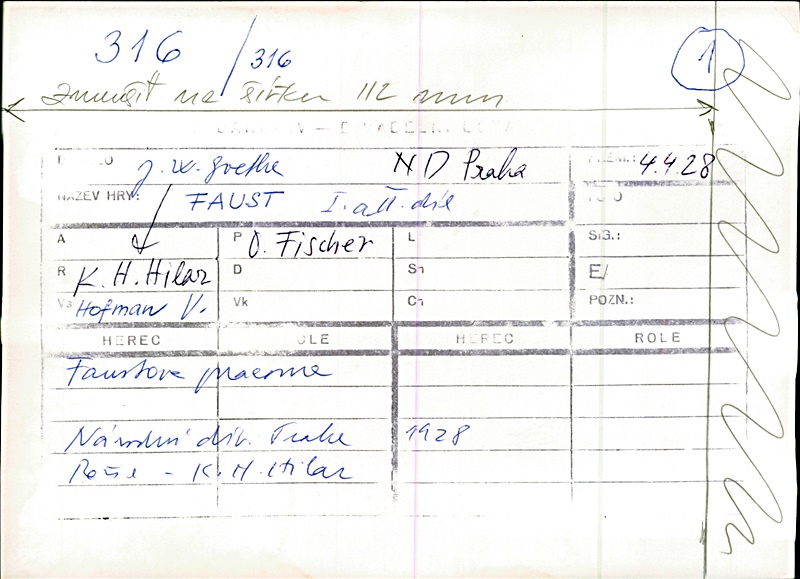 316 / 316 1
zmenšit na šířku 112 mm
J. W. Goethe ND Praha PREM.: 4.4.28
NÁZEV HRY: FAUST I. a II. díl
A P O. Fischer L SIG.:
R K. H. Hilar D E/
Hofman V. Vk POZN.:
HEREC HEREC ROLE
Faustova pracovna
Národní div. Praha 1928
Režie - K. H. Hilar